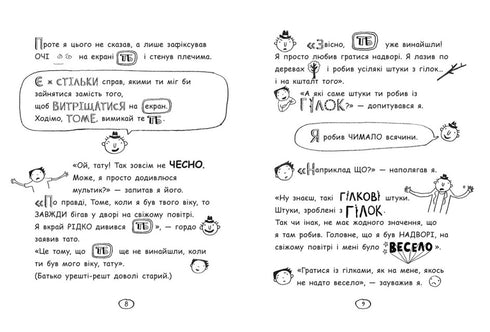 Проте я цього не сказав, а лише зафіксував
ОЧІ на екрані ТБ і стенув плечима.
Є ж СТІЛЬКИ справ, якими ти міг би
зайнятися замість того,
щоб ВИТРІЩАТИСЯ на екран.
Ходімо, ТОМЕ, вимикай те ТБ.
«Ой, тату! Так зовсім не ЧЕСНО.
Може, я просто додивлюся
мультик?» — запитав я його.
«По правді, Томе, коли я був твого віку, то
ЗАВЖДИ бігав у дворі на свіжому повітрі.
Я вкрай РІДКО дивився ТБ», — гордо
заявив тато.
«Це тому, що ТБ ще не винайшли, коли
ти був мого віку, тату».
(Батько урешті-решт доволі старий.)
8
«Звісно, ТБ уже винайшли!
Я просто любив гратися надворі. Я лазив по
деревах і робив усілякі штуки з гілок...
і на кшталт того».
«А які саме штуки ти робив із
ГІЛОК?» — допитувався я.
Я робив ЧИМАЛО всячини.
«Наприклад ЩО?» — наполягав я.
«Ну знаєш, такі ГІЛКОВІ штуки.
Штуки, зроблені з ГІЛОК.
Так чи інак, не має жодного значення, що
я там робив. Головне, що я був НАДВОРІ, на
свіжому повітрі і мені було ВЕСЕЛО».
«Гратися з гілками, як на мене, якось
не надто весело», — зауважив я.
9